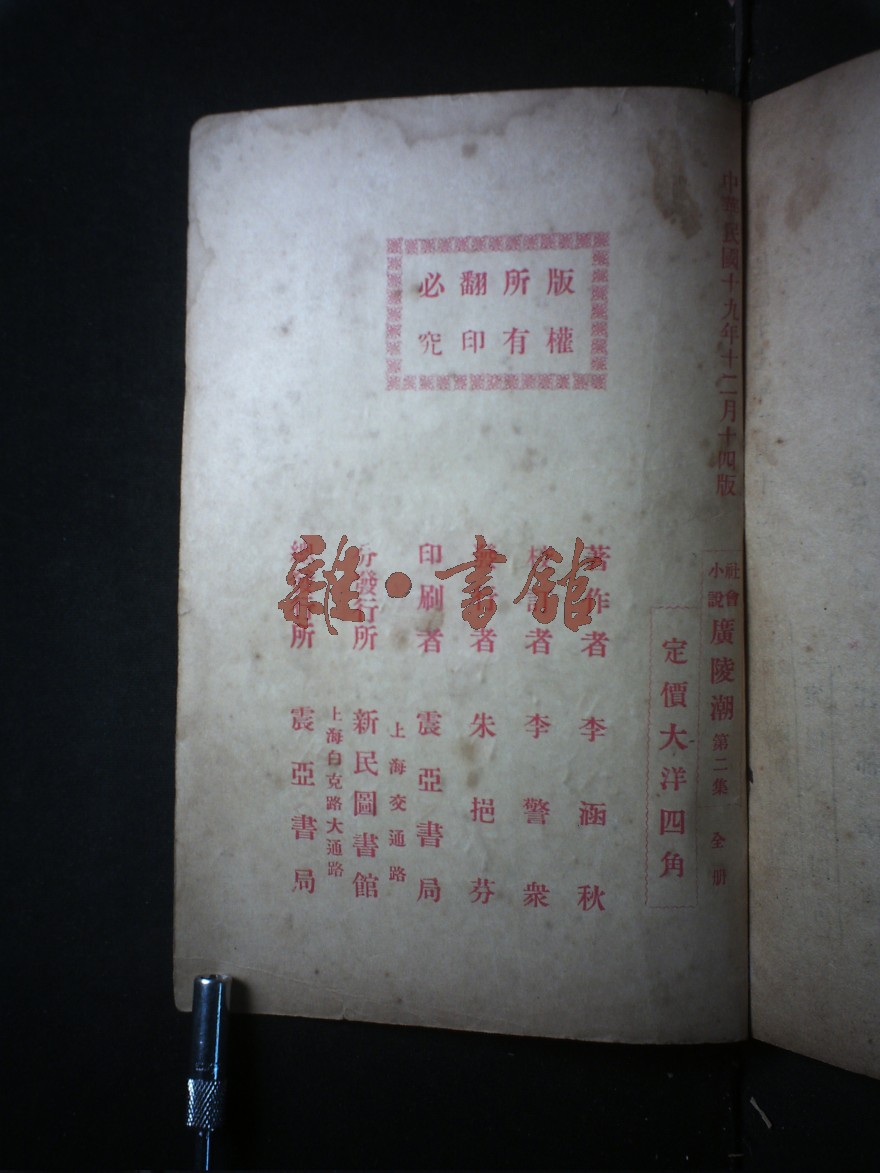 中華民國十九年十二月十四版
社會
小說
廣陵潮 第二集 全冊
定價大洋四角
版權
所有
翻印
必究
著作者 李涵秋
校訂者 李警衆
發行者 朱挹芬
印刷者 震亞書局
上海交通路
分發行所 新民圖書館
上海白克路大通路
總發行所 震亞書局
雜·書館